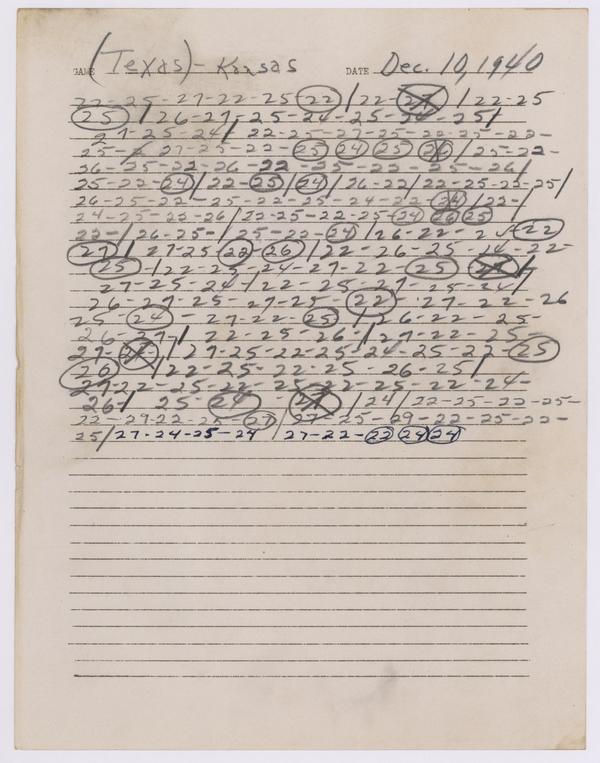 GAME (Texas) - Kansas DATE Dec. 10, 1940
22-25-27-22-25 22 / 22-27 / 22-25
25 / 26-27-25-24-25-24-25/
27-25-24/ 22-25-27-25-22-25-22-
25- 27-25-22- 25 24 25 26 / 25-22-
26-25-22-26-22-25-22-25-26/
25-22-24/22-25/24/26-22/22-25-22-25/
26-25-22-25-22-25-24-22-24/22-/
24-25-22-26/22-25-22-25-24 26 25
22-/26-25-/25-22-24/26-22- 22
27 / 27-25 22-26/22-26-25-24-22-
25-/22-25-24-27-22-25 /
27-25-24-/22-25-27-25-24/
26-27-25-27-25-22 27-22-26
25-24-27-22-25/26-22-25-
26-27/22-25-26/27-22-25-
27- /27-25-22-25-24-25-22-25
26/22-25-22-25-26-25/
27-22-25-22-25-22-25-22-24-
26/ 25-24- 27 /24/22-25-22-25-
22-27-22-25-27/27-25-29-22-25-22-
25/27-24-25-24 /27-22-22 24 24